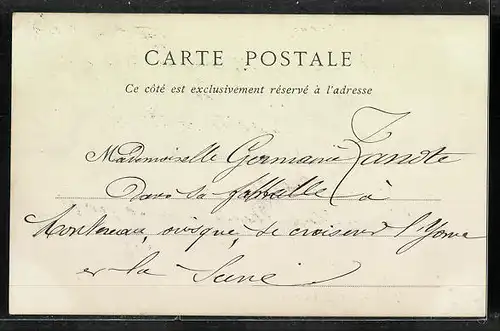 CARTE POSTALE
Ce côté est exclusivement réservé à l'adresse
Mademoiselle Germaine
Dans la à
Montereau, où se croisent l'Yonne
et la Seine